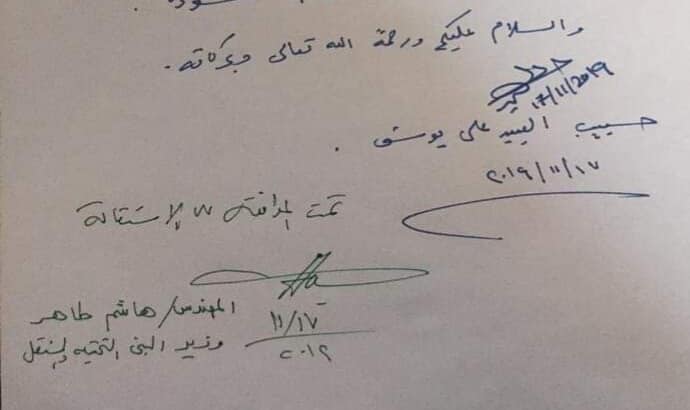 والسلام عليكم ورحمة الله تعالى وبركاته .
17/11/2019
حسيب السيد علي يوسف .
٢٠١٩/١١/١٧
تمت الموافقة على الإستقالة
المهندس/ هاشم طاهر
وزير البنى التحتيه والنقل
١١/١٧
٢٠١٩